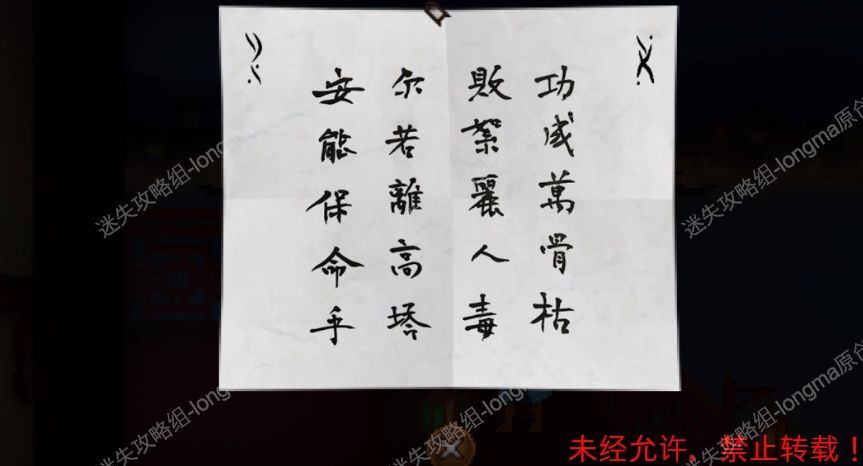 功成萬骨枯
敗絮麗人毒
尔若離高塔
安能保命乎
迷失攻略组-longma原创
迷失攻略组-longma原创
迷失攻略组-longma原创
迷失攻略组-longma原创
未经允许，禁止转载！